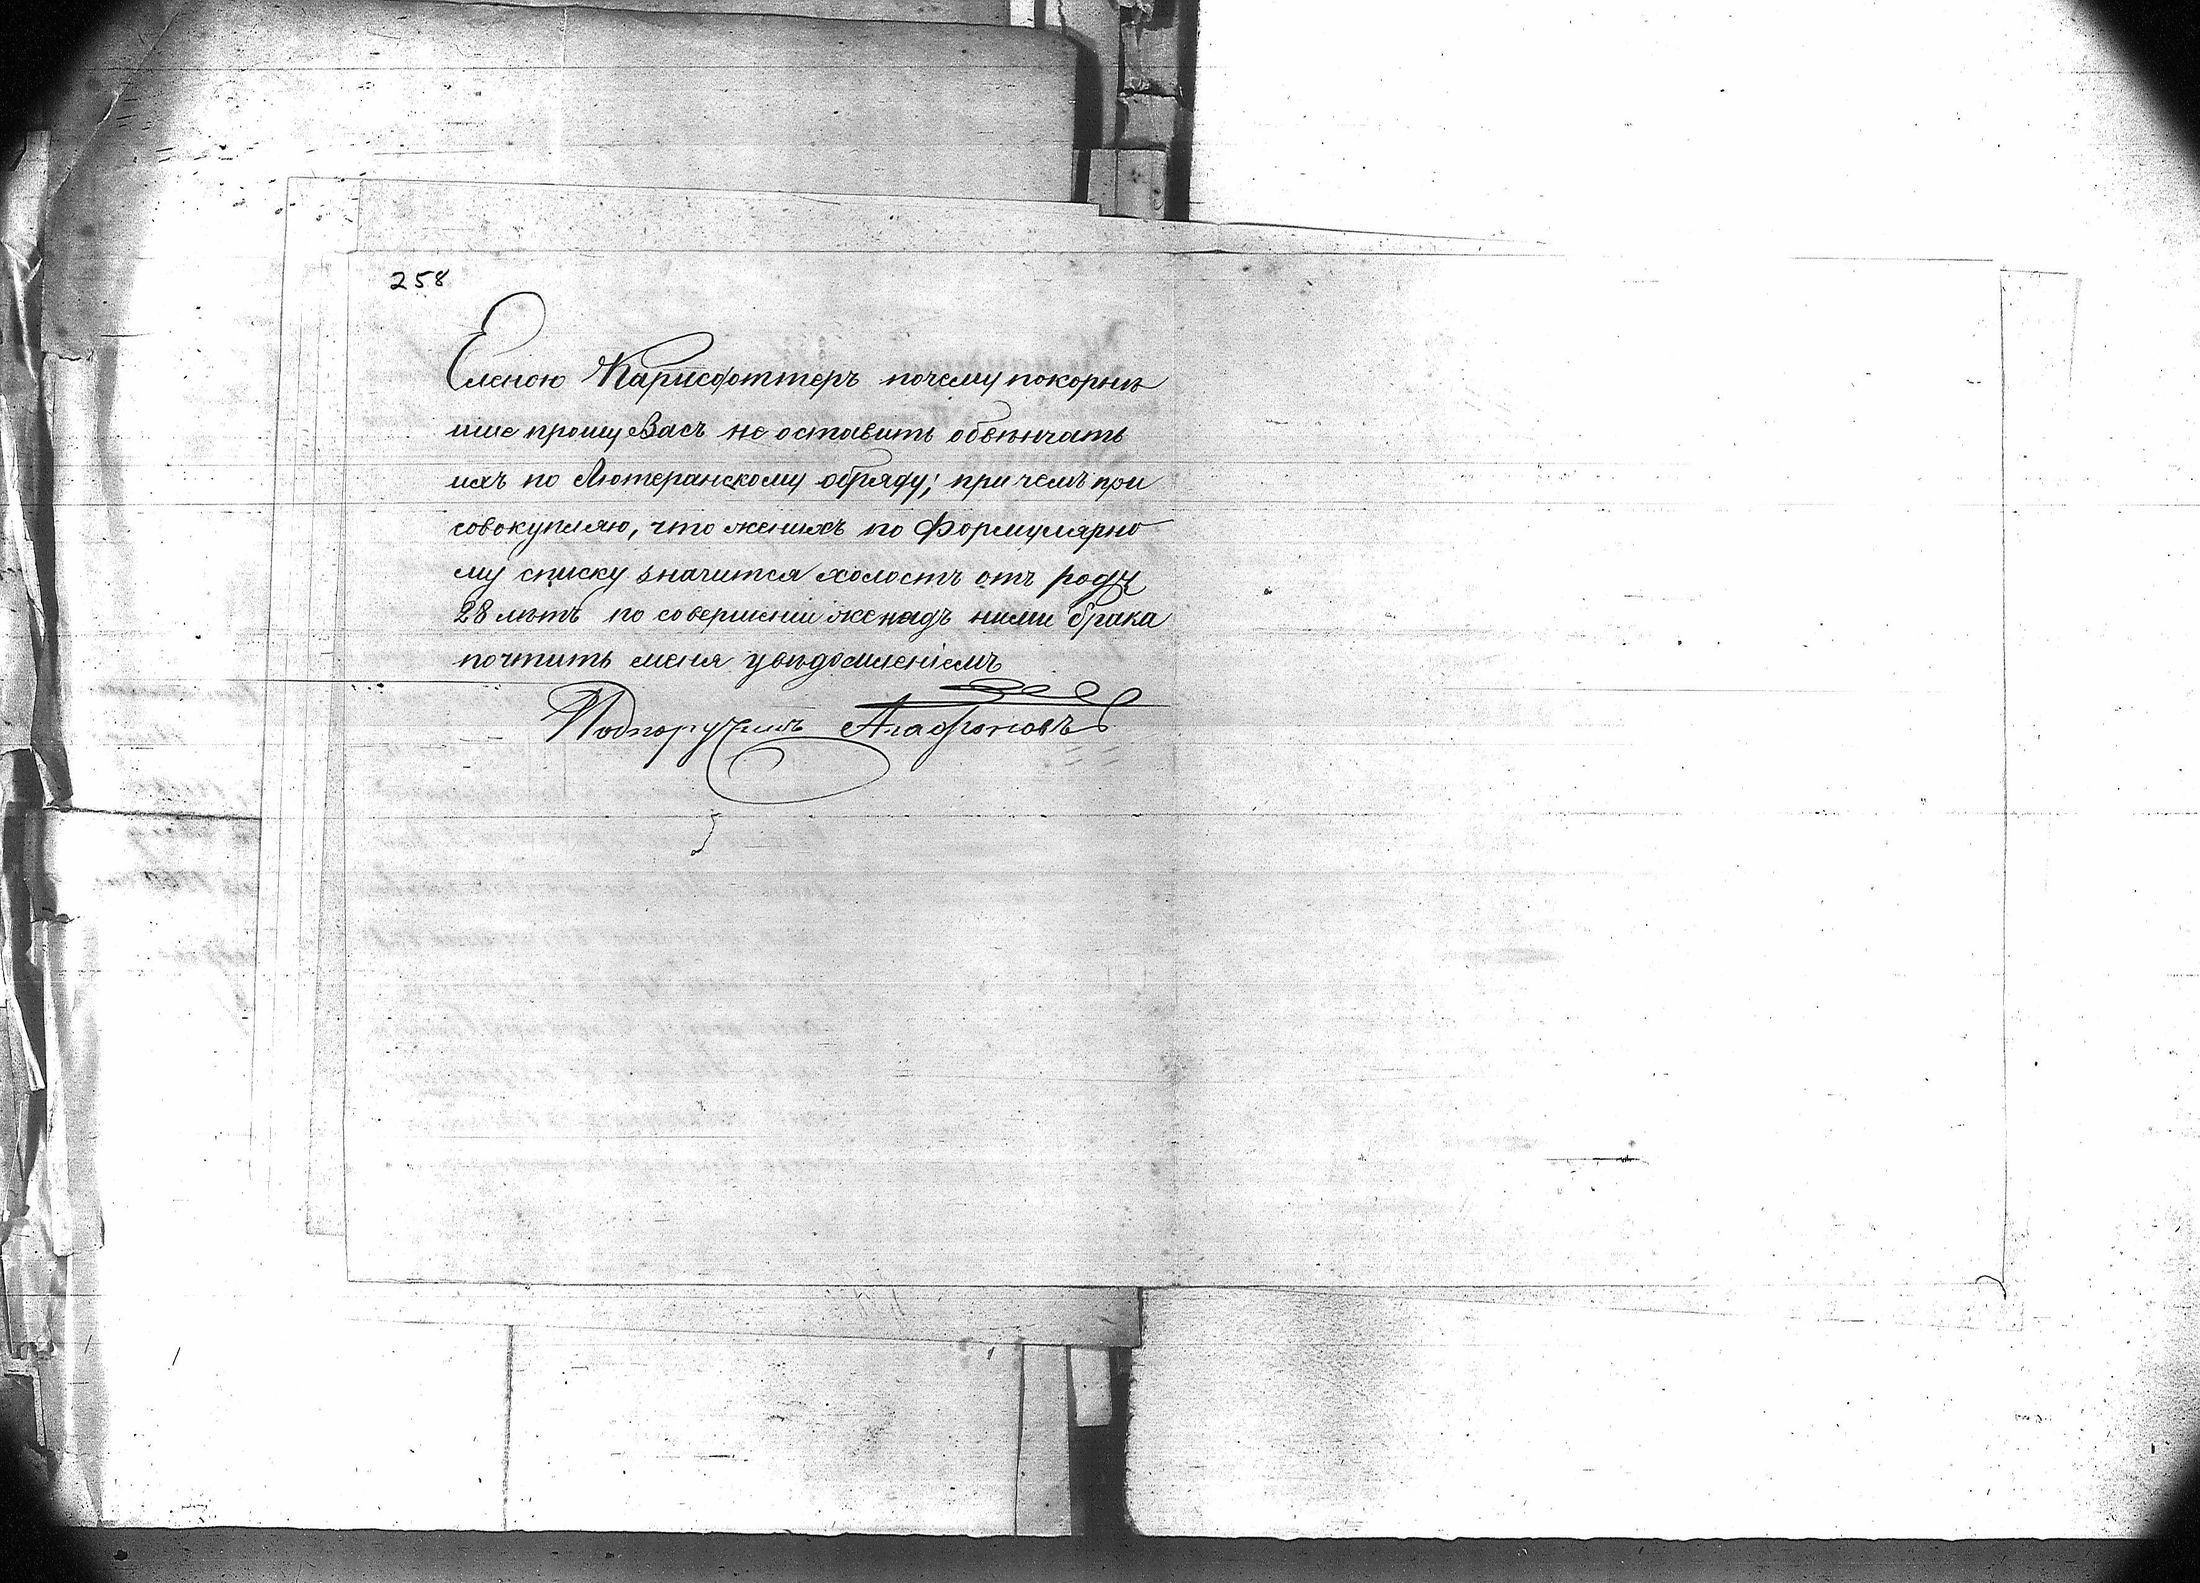 258
Еленою Карисфоттеръ почему покорнѣ
йше прошу Васъ не оставить обвѣнчать
ихъ по Лютеранскому обряду; при чемъ при
совокупляю, что женихъ по Формулярно
му списку значится холостъ отъ роду
28 лѣтъ по совершеніи же надъ ними брака
почтить меня увѣдомленіемъ
Подпоручикъ Агафоновъ